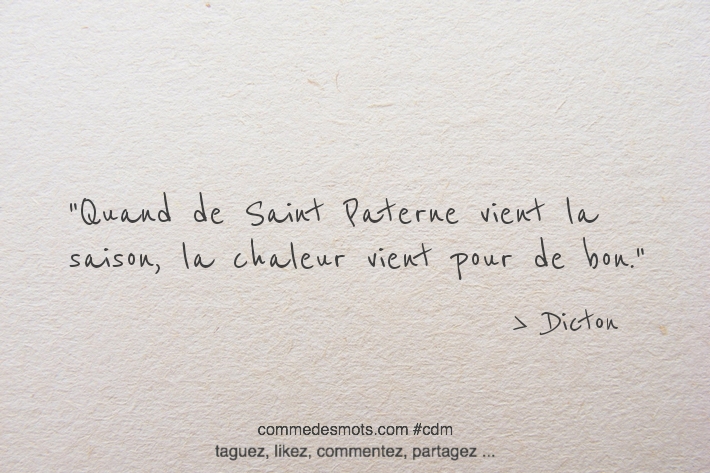 "Quand de Saint Paterne vient la
saison, la chaleur vient pour de bon."
> Dicton
commedesmots.com #cdm
taguez, likez, commentez, partagez ...